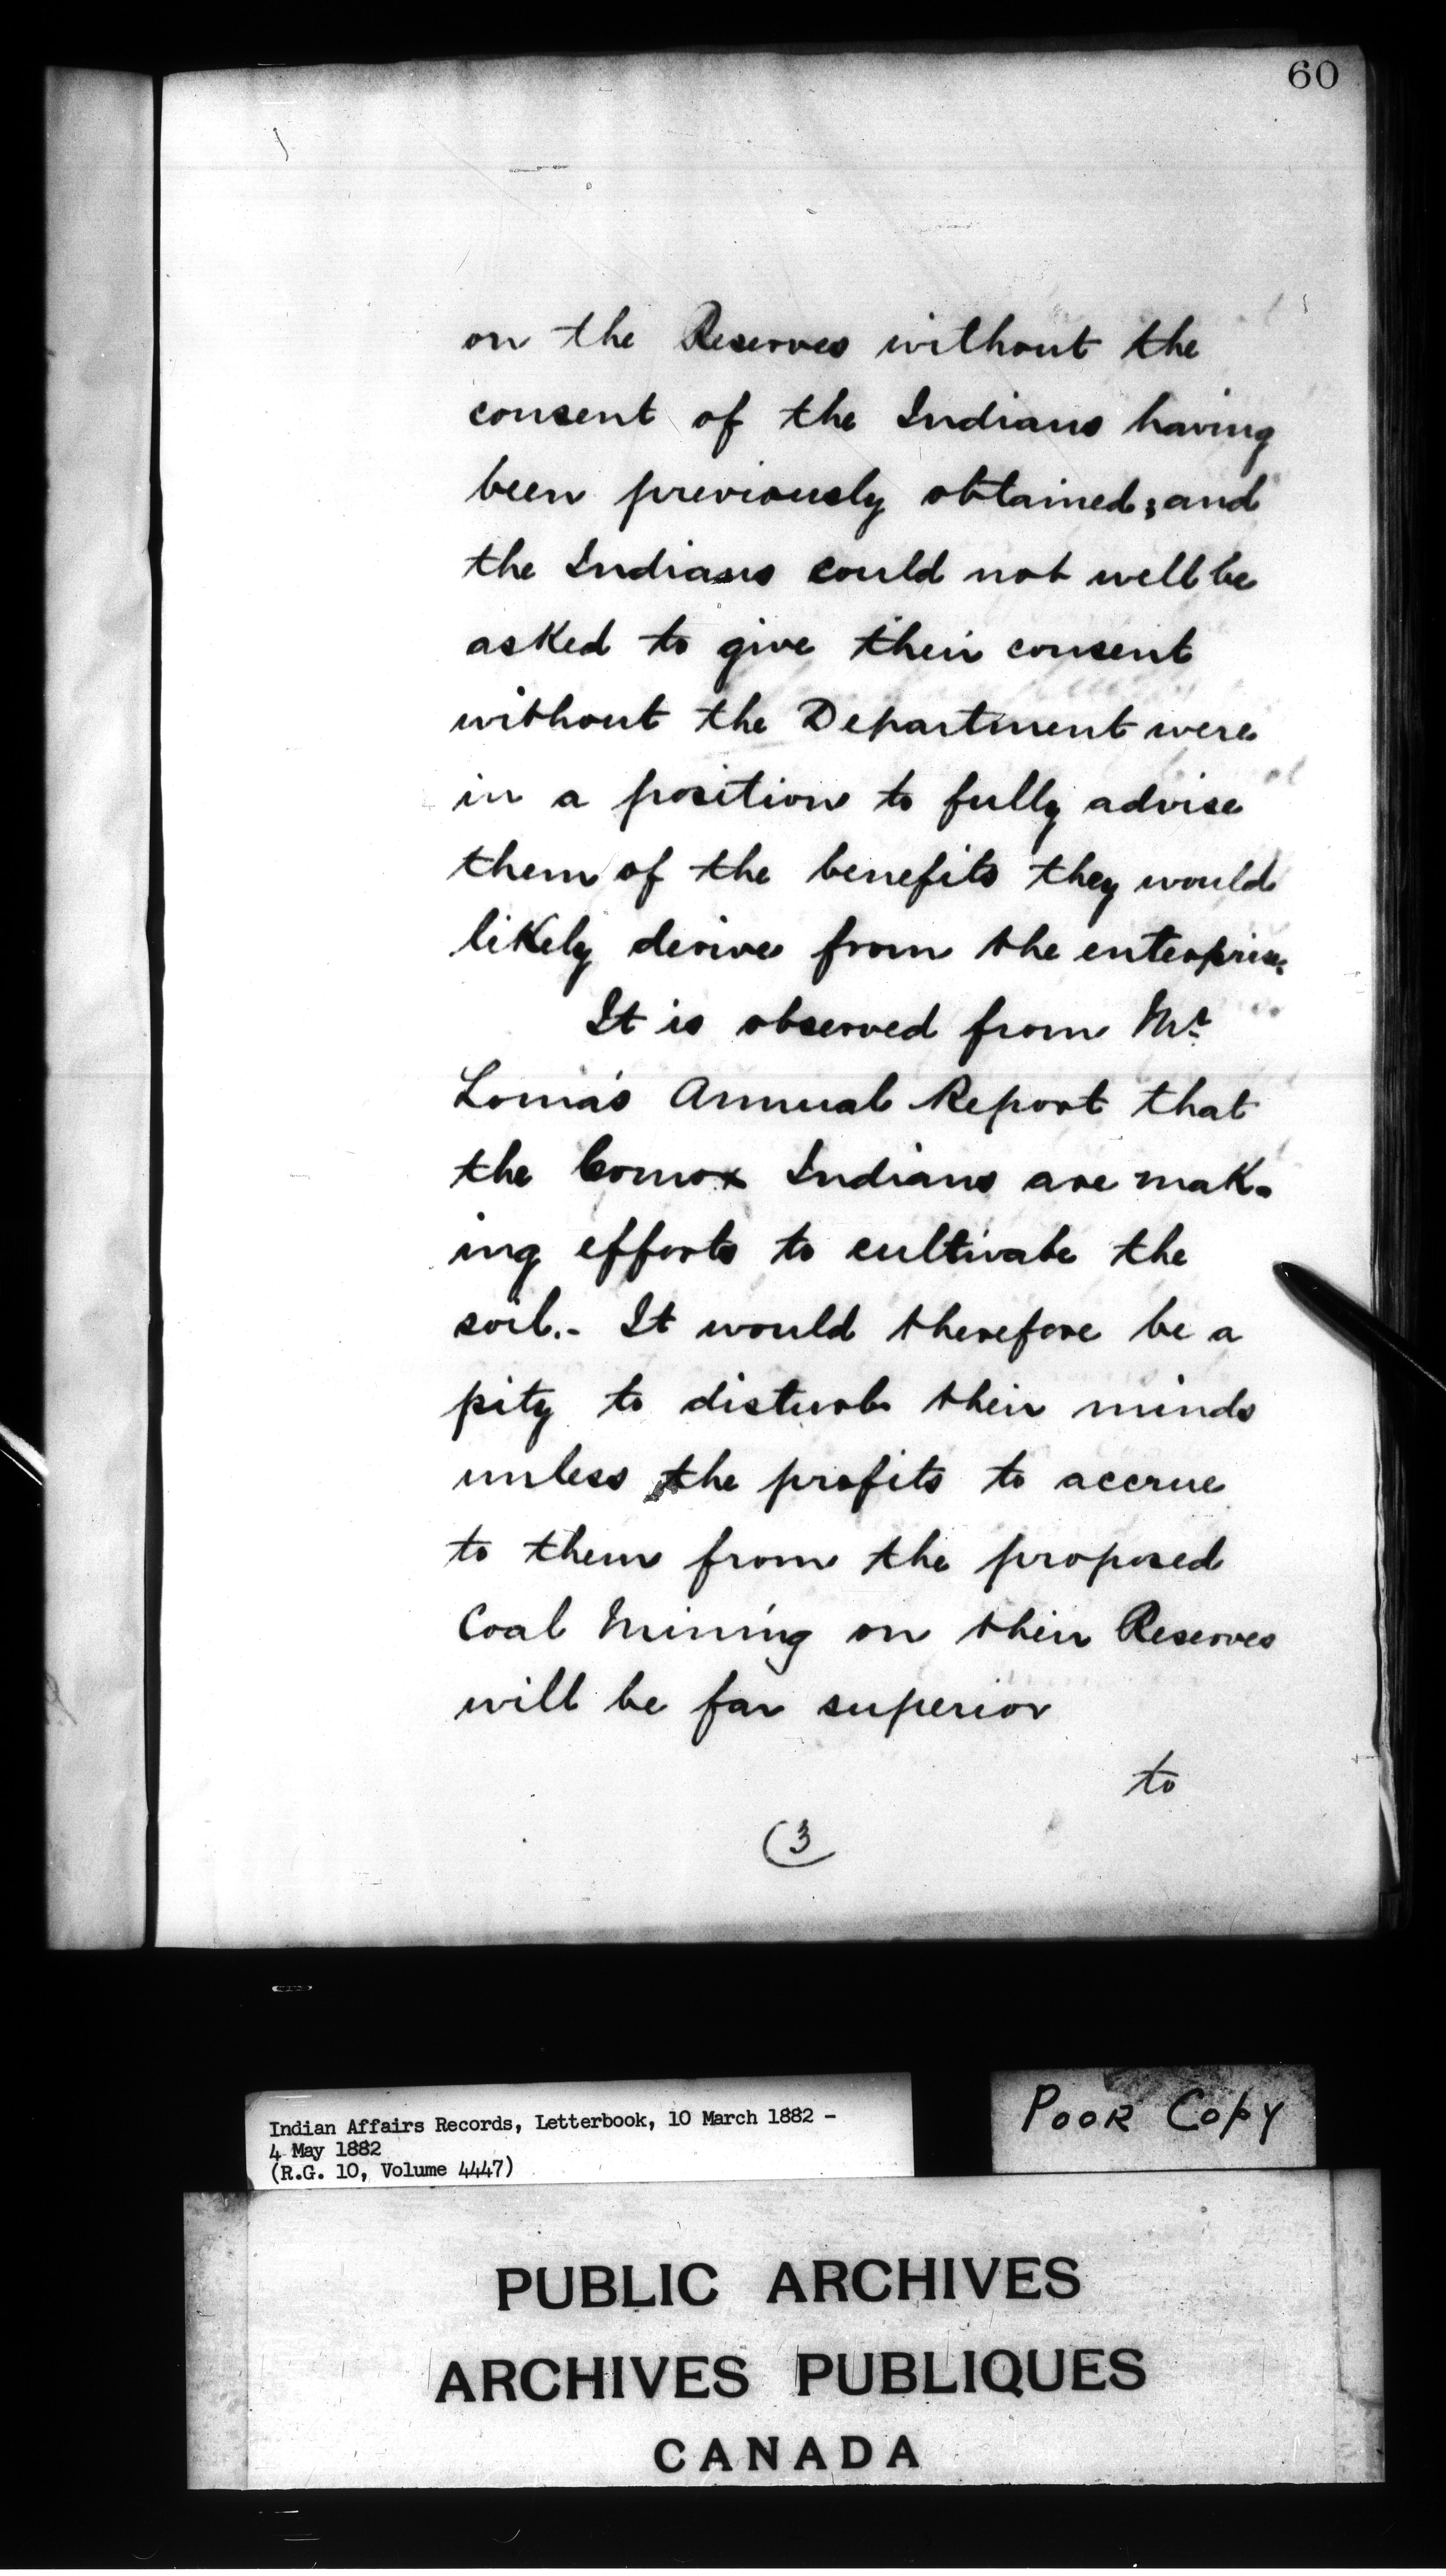 60
on the Reserves without the
consent of the Indians having
been previously obtained; and
the Indians could not well be
asked to give their consent
without the Department were
in a position to fully advise
them of the benefits they would
likely derive from the enterprise.
It is observed from Mr.
Loma's Annual Report that
the Comox Indians are mak-
ing efforts to cultivate the
soil.- It would therefore be a
pity to disturb their minds
unless the profits to accrue
to them from the proposed
Coal Mining on their Reserves
will be far superior
to
3
Indian Affairs Records, Letterbook, 10 March 1882 -
4 May 1882
(R.G. 10, Volume 4447)
POOR COPY
PUBLIC ARCHIVES
ARCHIVES PUBLIQUES
CANADA